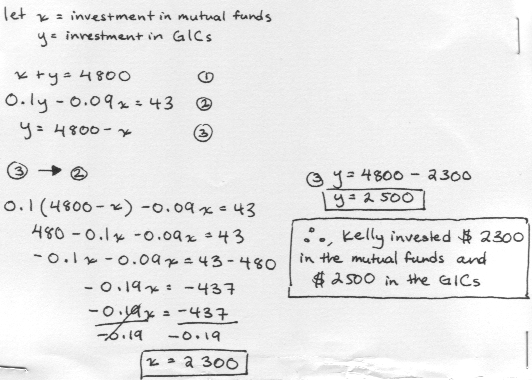 let x = investment in mutual funds
y = investment in GICs
x + y = 4800 ①
0.1y - 0.09x = 43 ②
y = 4800 - x ③
③ → ②
0.1(4800 - x) - 0.09x = 43
480 - 0.1x - 0.09x = 43
-0.1x - 0.09x = 43 - 480
-0.19x = -437
-0.19x = -437
-0.19 -0.19
x = 2300
③ y = 4800 - 2300
y = 2500
∴, Kelly invested $ 2300
in the mutual funds and
$ 2500 in the GICs